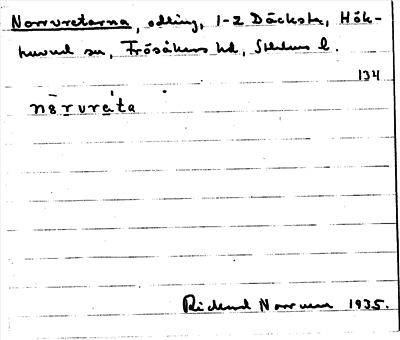 Norrvretarna, odling, 1-2 Däcksta, Hök-
huvud sn, Frösåkers hd, Sthlms l.
134
nȯrvreta
Rickard Norrman 1935.